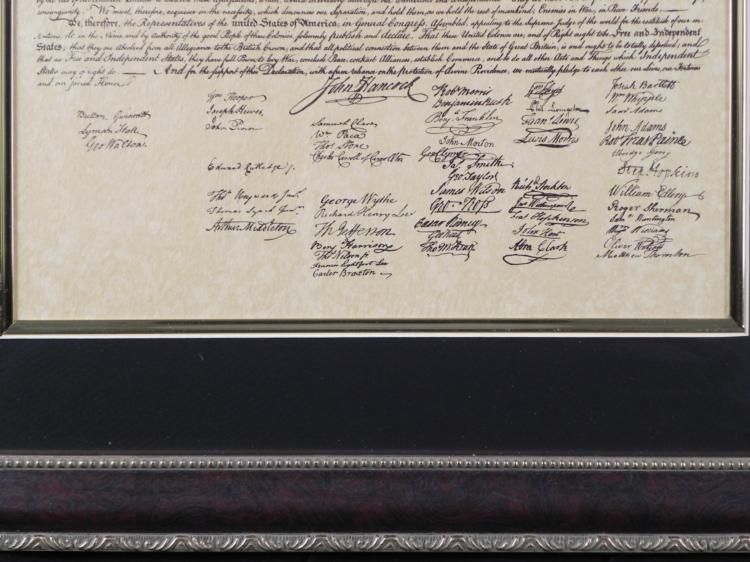 We, therefore, the Representatives of the united States of America, in General Congress, Assembled, appealing to the Supreme Judge of the world for the rectitude of our in-
tentions, do, in the Name, and by authority of the good People of these Colonies, solemnly publish and declare, That these United Colonies are, and of Right ought to be Free and Independent
States; that they are Absolved from all Allegiance to the British Crown, and that all political connection between them and the State of Great Britain, is and ought to be totally dissolved; and
that as Free and Independent States, they have full Power to levy War, conclude Peace, contract Alliances, establish Commerce, and to do all other Acts and Things which Independent
States may of right do. And for the support of this Declaration, with a firm reliance on the protection of divine Providence, we mutually pledge to each other our Lives, our Fortunes
and our sacred Honor.
John Hancock
Button Gwinnett
Lyman Hall
Geo Walton.
Wm Hooper
Joseph Hewes
John Penn
Edward Rutledge
Thos Heyward Junr.
Thomas Lynch Junr.
Arthur Middleton
Samuel Chase
Wm Paca
Thos Stone
Charles Carroll of Carrollton
George Wythe
Richard Henry Lee
Th Jefferson
Benj Harrison
Thos Nelson jr
Francis Lightfoot Lee
Carter Braxton
Robt Morris
Benjamin Rush
Benj Franklin
John Morton
Geo Clymer
Jas Smith
Geo Taylor
James Wilson
Geo Ross
Caesar Rodney
Geo Read
Tho M:Kean
Wm Floyd
Phil Livingston
Frans Lewis
Lewis Morris
Richd Stockton
Jno Witherspoon
Fras Hopkinson
John Hart
Abra Clark
Josiah Bartlett
Wm Whipple
Saml Adams
John Adams
Robt Treat Paine
Elbridge Gerry
Step Hopkins
William Ellery
Roger Sherman
Saml Huntington
Wm Williams
Oliver Wolcott
Matthew Thornton